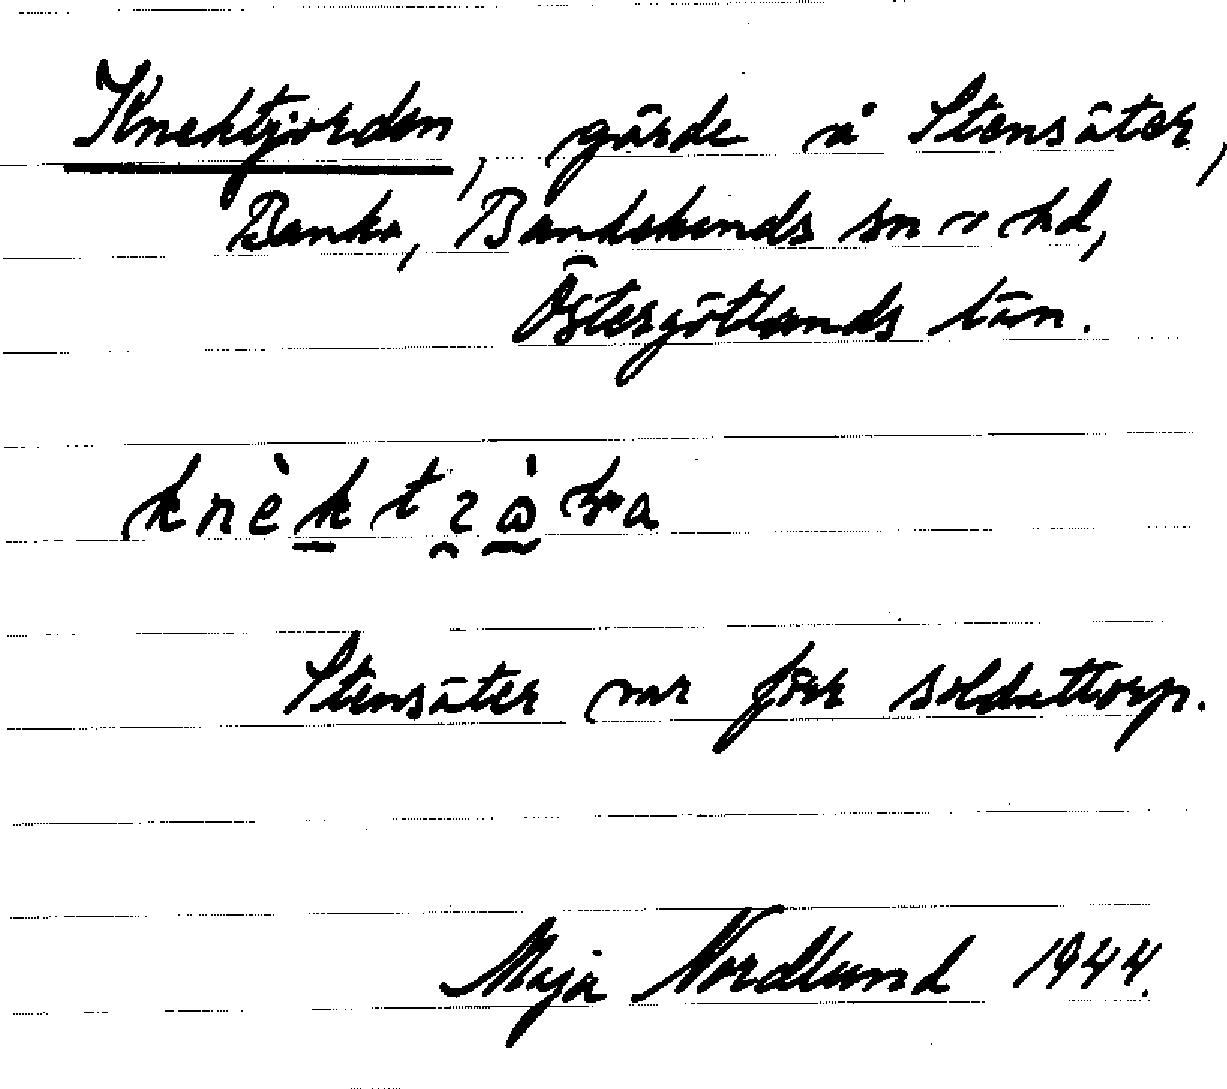 Knektjorden, gärde å Stensäter,
Banka, Bankekinds sn o hd,
Östergötlands län.
Stensäter var förr soldattorp.
Maja Nordlund 1944.